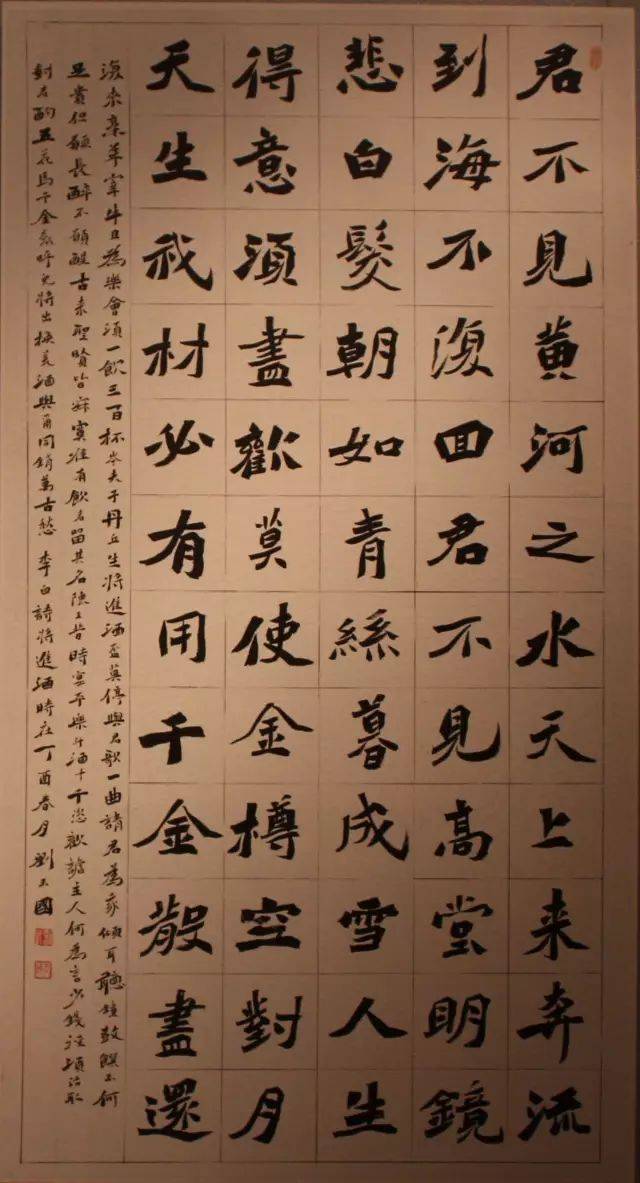 君不見黄河之水天上来奔流
到海不復回君不見高堂明鏡
悲白髮朝如青絲暮成雪人生
得意須盡歡莫使金樽空對月
天生我材必有用千金散盡還
復来烹羊宰牛且為樂會須一飲三百杯岑夫子丹丘生將進酒盃莫停與君歌一曲請君為我傾耳聽鐘鼓饌玉何
足貴但願長醉不願醒古来聖賢皆寂寞惟有飲者留其名陳王昔時宴平樂斗酒十千恣歡謔主人何為言少錢徑須沽取
對君酌五花馬千金裘呼兒將出換美酒與爾同銷萬古愁 李白詩將進酒時在丁酉春月劉玉國